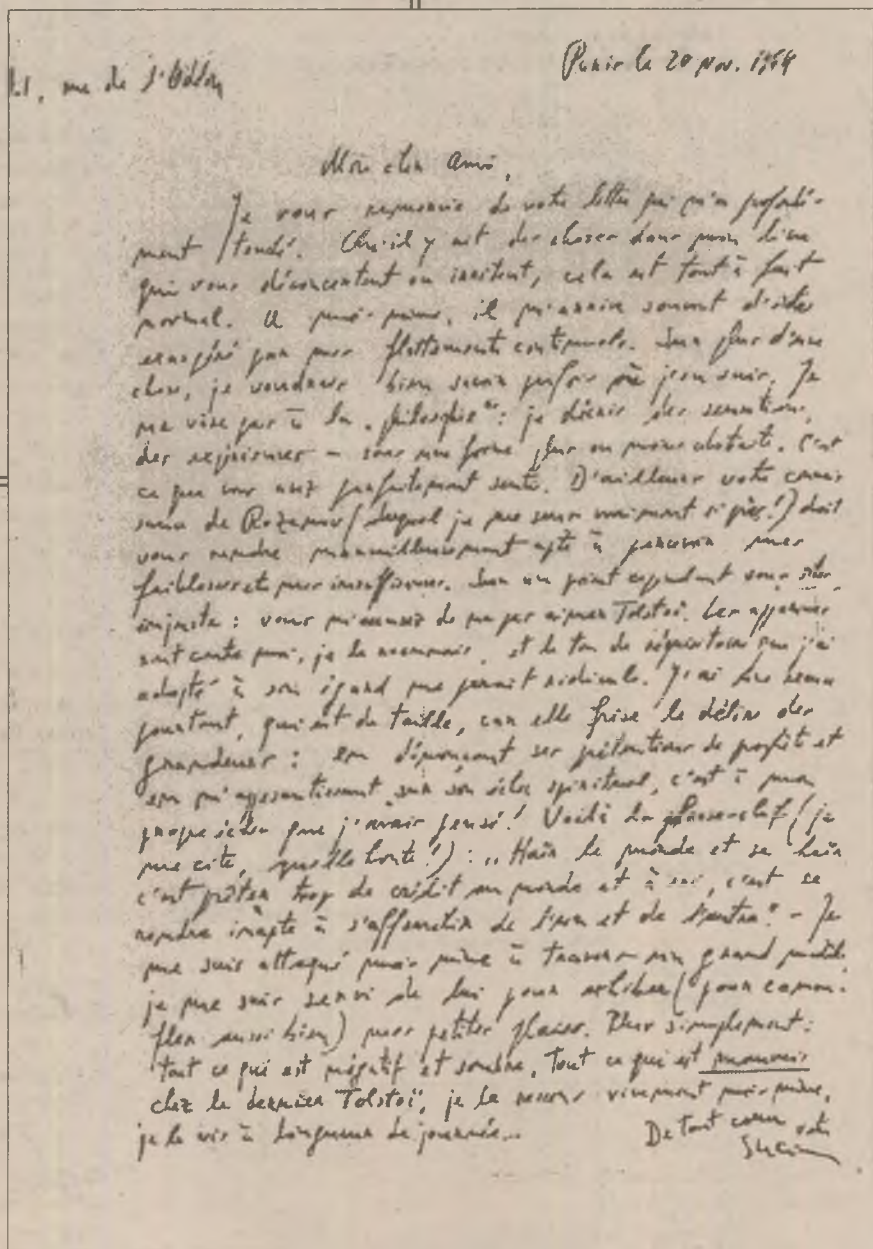 21, rue de l'Odéon
Paris le 20 Nov. 1964
Mon cher Ami,
Je vous remercie de votre lettre qui m'a profondé-
ment touché. Qu'il y ait des choses dans mon livre
qui vous déconcertent ou irritent, cela est tout à fait
normal. A moi-même, il m'arrive souvent d'être
exaspéré par mes flottements continuels. Sur plus d'une
chose, je voudrais bien savoir parfois où j'en suis. Je
ne vise pas à la „philosophie": je décris des sensations,
des
— sous une forme plus ou moins abstraite. C'est
ce que vous avez parfaitement senti. D'ailleurs votre connais-
sance de Rozanov (duquel je me sens vraiment si près!) doit
vous rendre merveilleusement apte à percevoir mes
faiblesses et mes insuffisances. Sur un point cependant vous êtes
injuste: vous m'accusez de ne pas aimer Tolstoï. Les apparences
sont contre moi, je le reconnais, et le ton de réquisitoire que j'ai
adopté à son égard me paraît ridicule. J'ai une excuse
pourtant, qui est de taille, car elle frise le délire des
grandeurs: en dénonçant ses prétentions de prophète et
en m'appesantissant sur son échec spirituel, c'est à mon
propre échec que j'avais pensé! Voilà la phrase-clef (je
me cite, quelle honte!): „Haïr le monde et se haïr
c'est prêter trop de crédit au monde et à soi, c'est se
rendre inapte à s'affranchir de l'un et de l'autre." – Je
me suis attaqué moi-même à travers un grand
je me suis servi de lui pour
(pour camou-
fler aussi bien) mes petites plaies. Plus simplement:
tout ce qui est négatif et sombre, tout ce qui est mauvais
chez le dernier Tolstoï, je le ressens vivement moi-même,
je le vis à longueur de journée...
De tout cœur votre